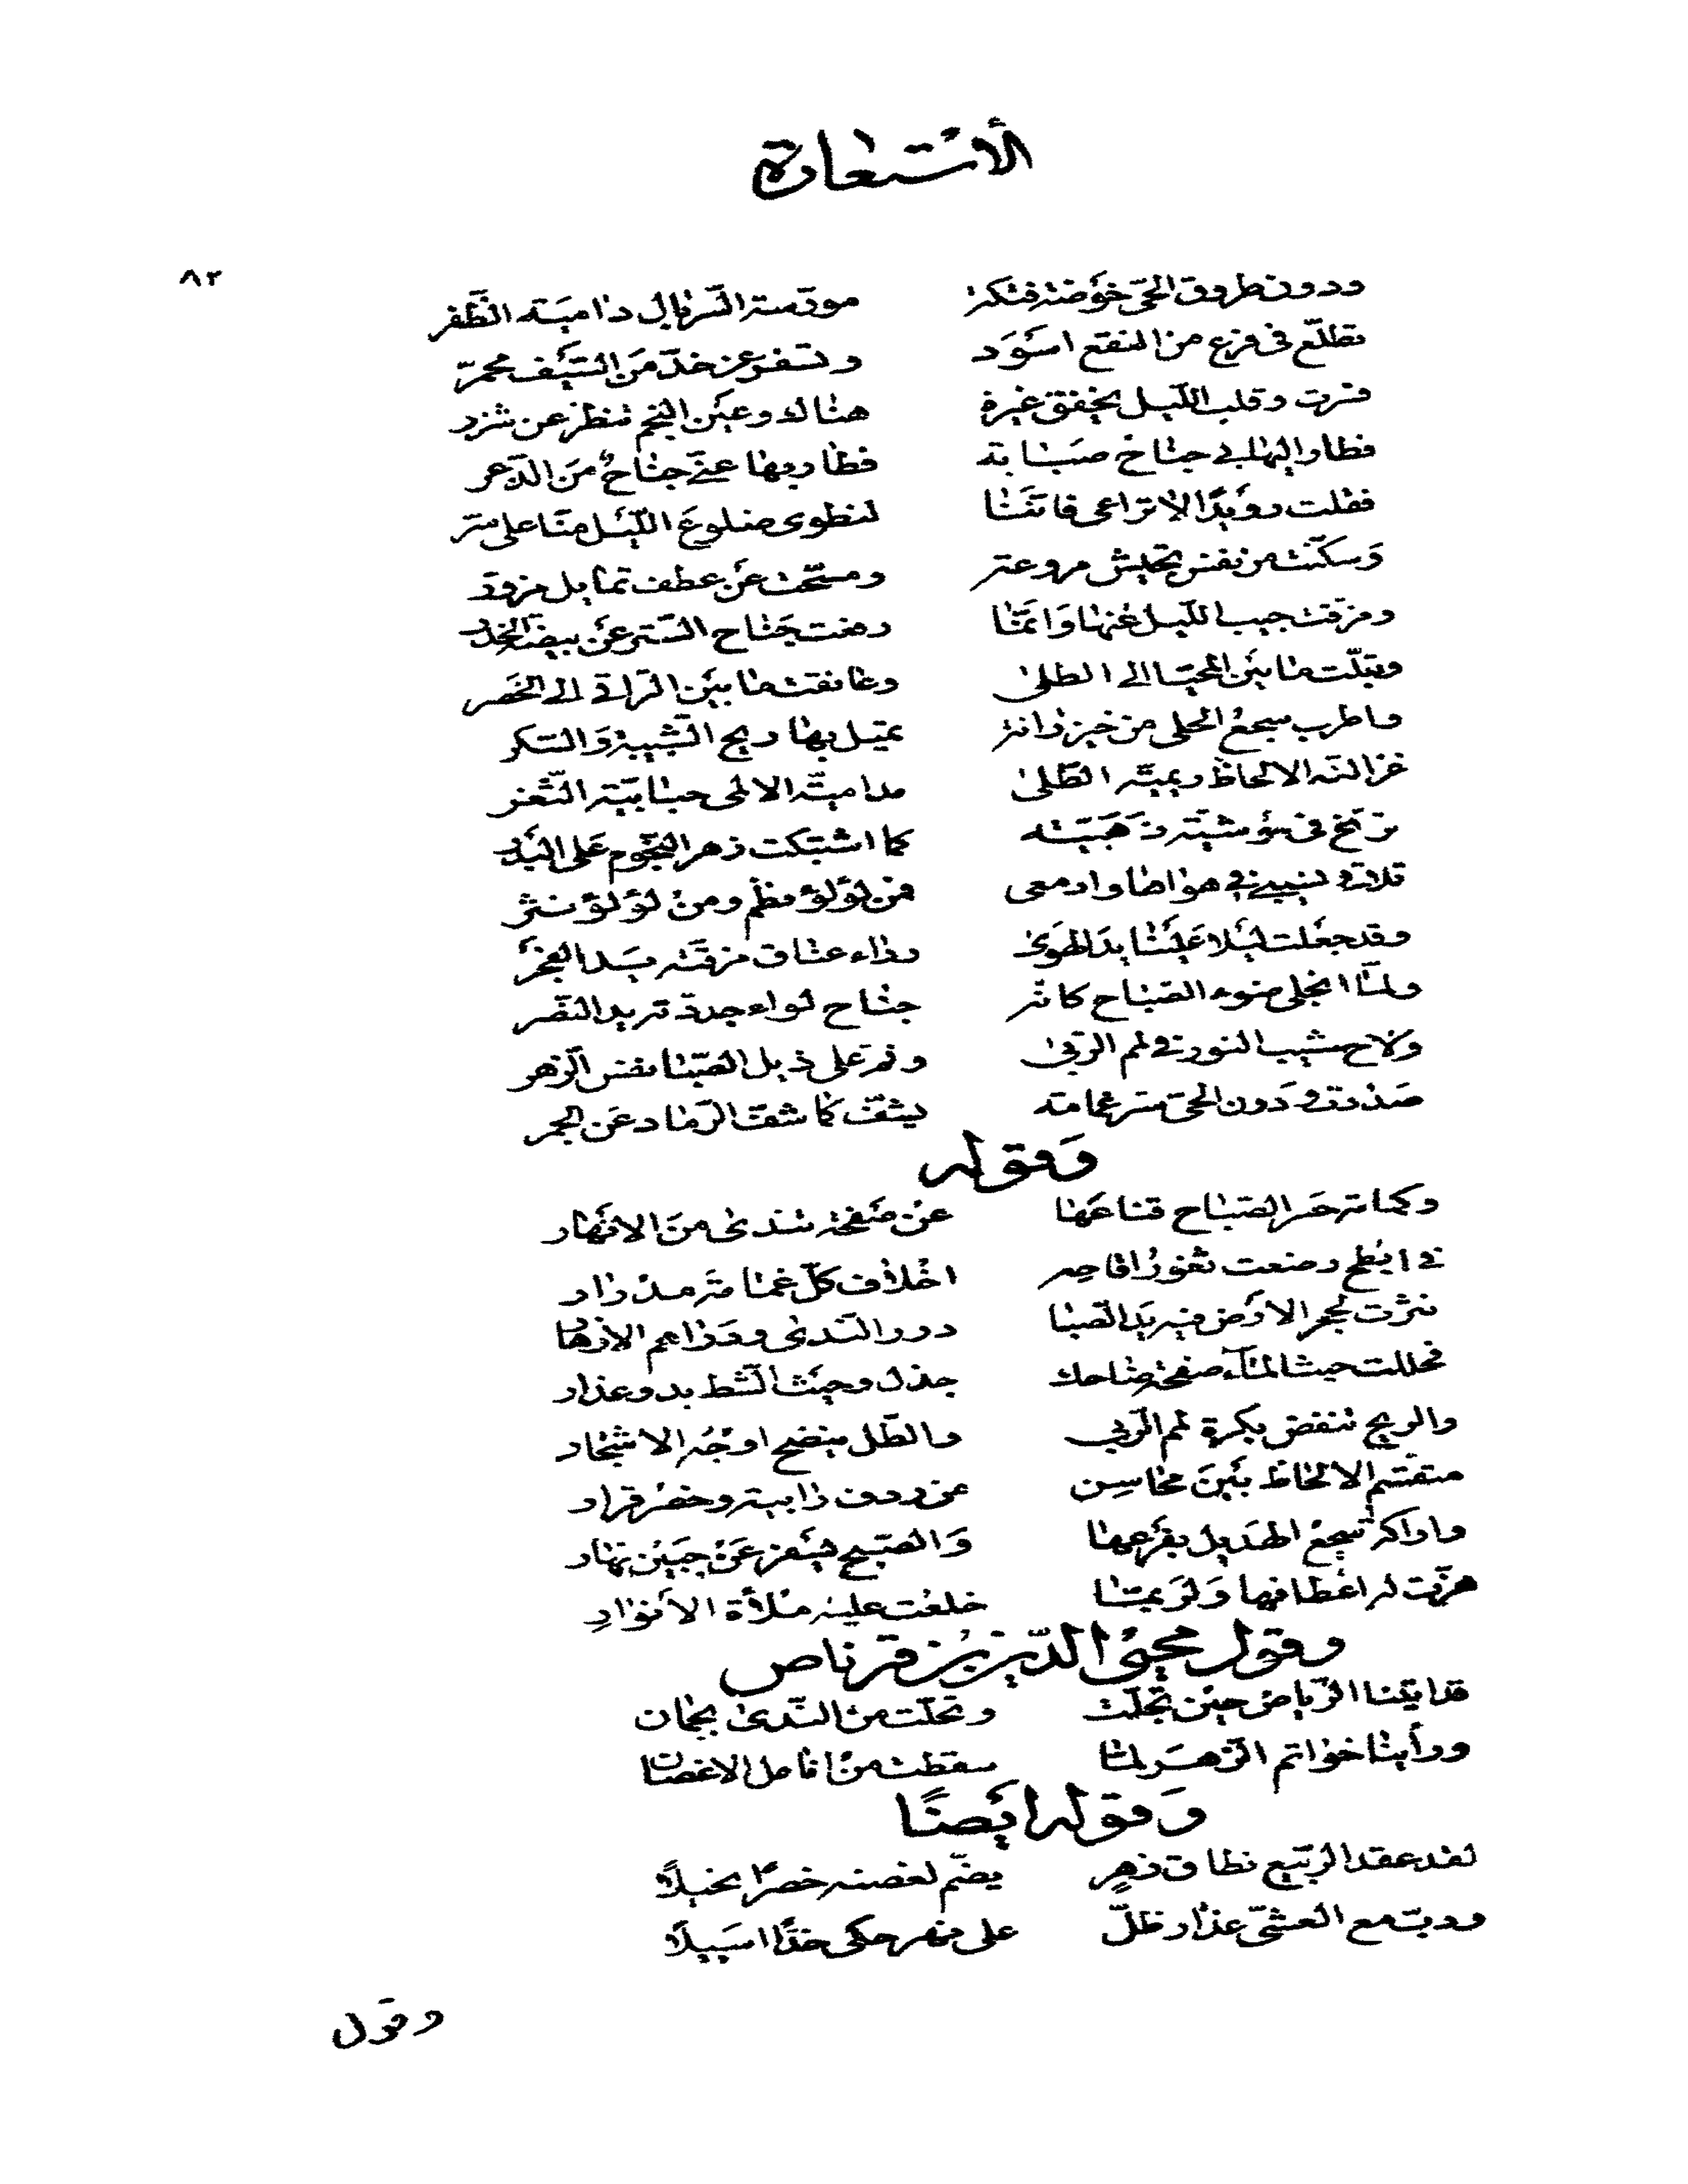 الاستعارة
٨٢
ودون طروق الحي خوضة فتكة مورسة السربال دامية الظفر
تطلع في فرع من النقع اسود وتسفر عن خد من السيف محمر
فسرت وقلب الليل يخفق غيرة هناك وعين النجم تنظر عن شزر
فطار اليها بي جناح صبابة فطار بها عني جناح من الذعر
فقلت رويدا لا تراعي فاننا لنطوي ضلوع الليل منا على سر
وسكنت من نفس تجيش مروعة ومسحت عن عطف تمايل مزور
ومزقت جيب الليل عنها وانما رفعت جناح الستر عن بيضة الخدر
وقبلت ما بين المحيا الى الطلى وعانقت ما بين التراقي الى الخصر
واطرب سجع الحلي من خيزرانة تميل بها ريح الشبيبة والسكر
غزالية الالحاظ ريمية الطلى مدامية الالمى حبابية الثغر
ترنح في موشية ذهبية كما اشتبكت زهر النجوم على البدر
تلاقى نسيبي في هواها وادمعي فمن لؤلؤ نظم ومن لؤلؤ نثر
وقد جعلت ليلا علينا يد الهوى رداء عناق مزقته يد الفجر
ولما انجلى ضوء الصباح كانه جناح لواء جدة تريد النصر
ولاح مشيب النور في لمم الربى ونم على ذيل الصبا نفس الزهر
صدرت ودون الحي ستر غمامة يشف كما شف الرماد عن الجمر
وقوله
وكمامة حسر الصباح قناعها عن صفحة تندى من الازهار
في ابطح رضعت ثغور اقاحه اخلاف كل غمامة مدرار
نثرت بحجر الارض فيه يد الصبا درر الندى ودراهم الازهار
فحللت حيث الماء صفحة ضاحك جذل وحيث الشط بدو عذار
والريح تنفض بكرة لمم الربى والطل ينضح اوجه الاشجار
متقسم الالحاظ بين محاسن من ردف رابية وخصر قرار
واراكة سجع الهديل بفرعها والصبح يسفر عن جبين نهار
هزت له اعطافها ولربما خلعت عليه ملأة الأنوار
وقول محيى الدين بن قرناص
قد اتينا الرياض حين تجلت وتحلت من الندى بجمان
ورأينا خواتم الزهر لما سقطت من انامل الاغصان
وقوله ايضًا
لقد عقد الربيع نطاق زهرٍ يضم لغصنه خصرًا نحيلاً
ودب مع العشي عذار ظل على نهر حكى خدًا اسيلاً
وقول